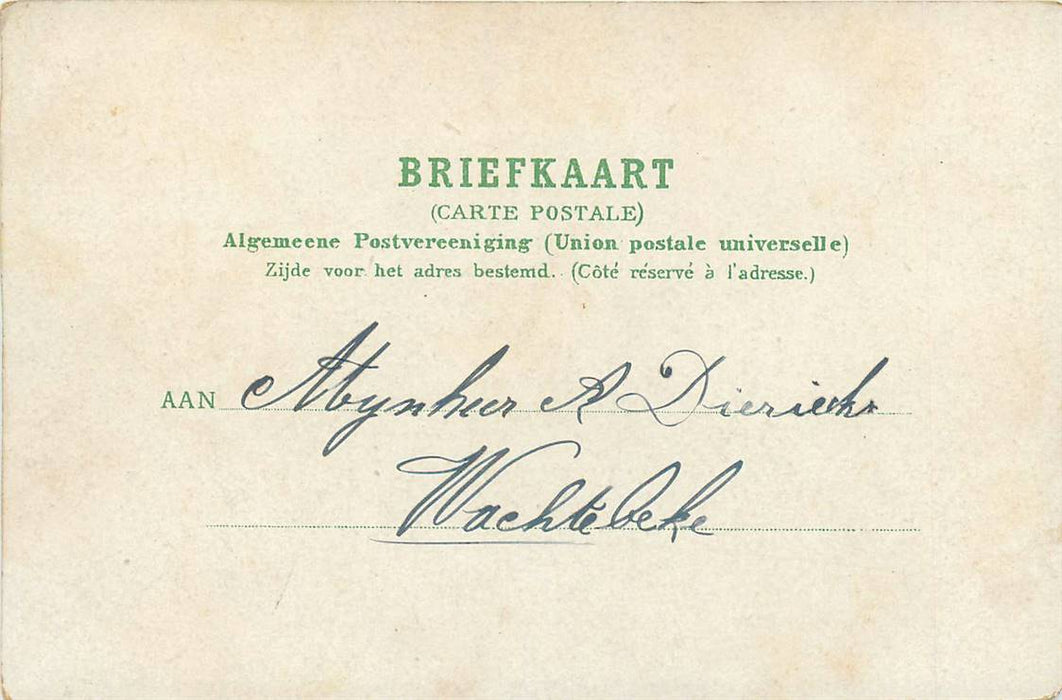 BRIEFKAART
(CARTE POSTALE)
Algemeene Postvereeniging (Union postale universelle)
Zijde voor het adres bestemd. (Côté réservé à l'adresse.)
AAN Mynheer A Dierickx
Wachtebeke